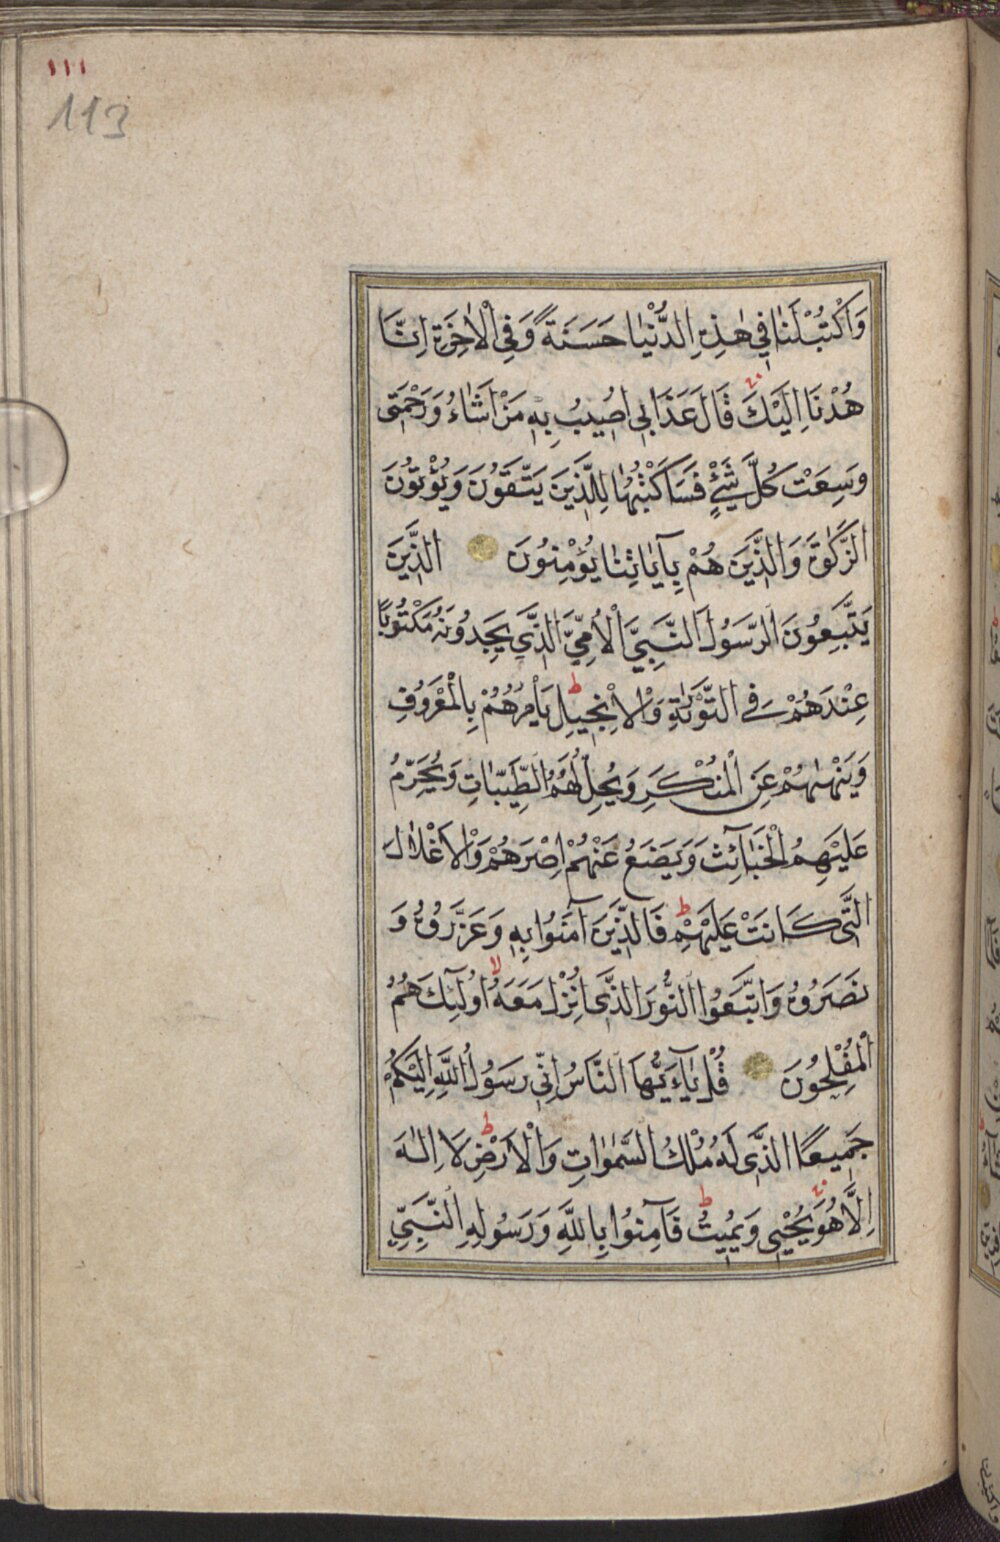 ١١١
113
وَاكْتُبْ لَنَا فِي هٰذِهِ الدُّنْيَا حَسَنَةً وَفِي الْاٰخِرَةِ اِنَّا
هُدْنَا اِلَيْكَ قَالَ عَذَابِي اُصِيبُ بِهِ مَنْ اَشَاءُ وَرَحْمَتِي
وَسِعَتْ كُلَّ شَيْءٍ فَسَاَكْتُبُهَا لِلَّذِينَ يَتَّقُونَ وَيُؤْتُونَ
الزَّكٰوةَ وَالَّذِينَ هُمْ بِآيَاتِنَا يُؤْمِنُونَ الَّذِينَ
يَتَّبِعُونَ الرَّسُولَ النَّبِيَّ الْاُمِّيَّ الَّذِي يَجِدُونَهُ مَكْتُوبًا
عِنْدَهُمْ فِي التَّوْرٰيةِ وَالْاِنْجِيلِ ط يَأْمُرُهُمْ بِالْمَعْرُوفِ
وَيَنْهٰيهُمْ عَنِ الْمُنْكَرِ وَيُحِلُّ لَهُمُ الطَّيِّبَاتِ وَيُحَرِّمُ
عَلَيْهِمُ الْخَبَآئِثَ وَيَضَعُ عَنْهُمْ اِصْرَهُمْ وَالْاَغْلَالَ
الَّتِي كَانَتْ عَلَيْهِمْ ط فَالَّذِينَ آمَنُوا بِهِ وَعَزَّرُوهُ وَ
نَصَرُوهُ وَاتَّبَعُوا النُّورَ الَّذِي اُنْزِلَ مَعَهُ لا اُولٰٓئِكَ هُمُ
الْمُفْلِحُونَ قُلْ يَآءَيُّهَا النَّاسُ اِنِّي رَسُولُ اللّٰهِ اِلَيْكُمْ
جَمِيعًا الَّذِي لَهُ مُلْكُ السَّمٰوَاتِ وَالْاَرْضِ ط لَا اِلٰهَ
اِلَّا هُوَ يُحْيِي وَيُمِيتُ ط فَآمِنُوا بِاللّٰهِ وَرَسُولِهِ النَّبِيِّ